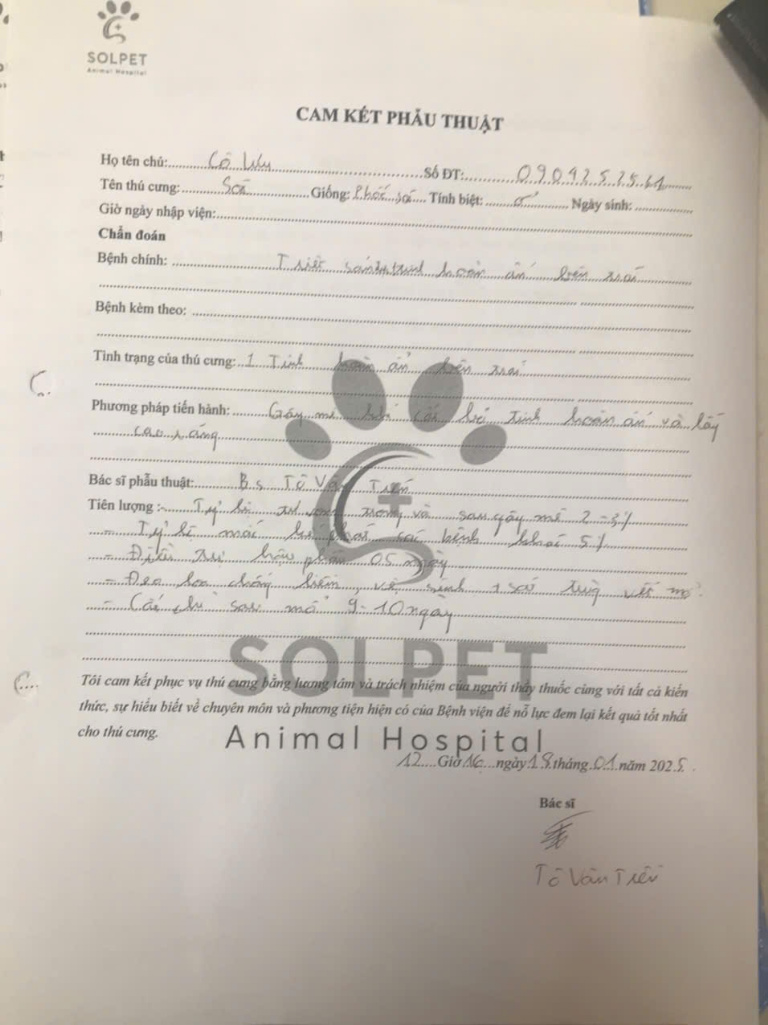 SOLPET
Animal Hospital
CAM KẾT PHẪU THUẬT
Họ tên chủ: Cô Số ĐT: 0909252561
Tên thú cưng: Giống: Phốc sóc Tính biệt: ♂ Ngày sinh:
Giờ ngày nhập viện:
Chẩn đoán
Bệnh chính: Triệt sản tinh hoàn ẩn bên trái
Bệnh kèm theo:
Tình trạng của thú cưng: 1 Tinh hoàn ẩn bên trái
Phương pháp tiến hành: Gây mê cắt bỏ tinh hoàn ẩn và lấy
cao răng
Bác sĩ phẫu thuật: B.s Tô Văn
Tiên lượng: - Tỷ lệ tử vong trong và sau gây mê 2-3%
- Tỷ lệ mắc bệnh khác 5%
- Điều trị hậu phẫu 05 ngày
- Đeo loa chống liếm, vệ sinh + sát trùng vết mổ.
- Cắt chỉ sau mổ 9-10 ngày
SOLPET
Tôi cam kết phục vụ thú cưng bằng lương tâm và trách nhiệm của người thầy thuốc cùng với tất cả kiến
thức, sự hiểu biết về chuyên môn và phương tiện hiện có của Bệnh viện để nỗ lực đem lại kết quả tốt nhất
cho thú cưng.
Animal Hospital
12 Giờ 16 ngày 18 tháng 01 năm 2025.
Bác sĩ
Tô Văn